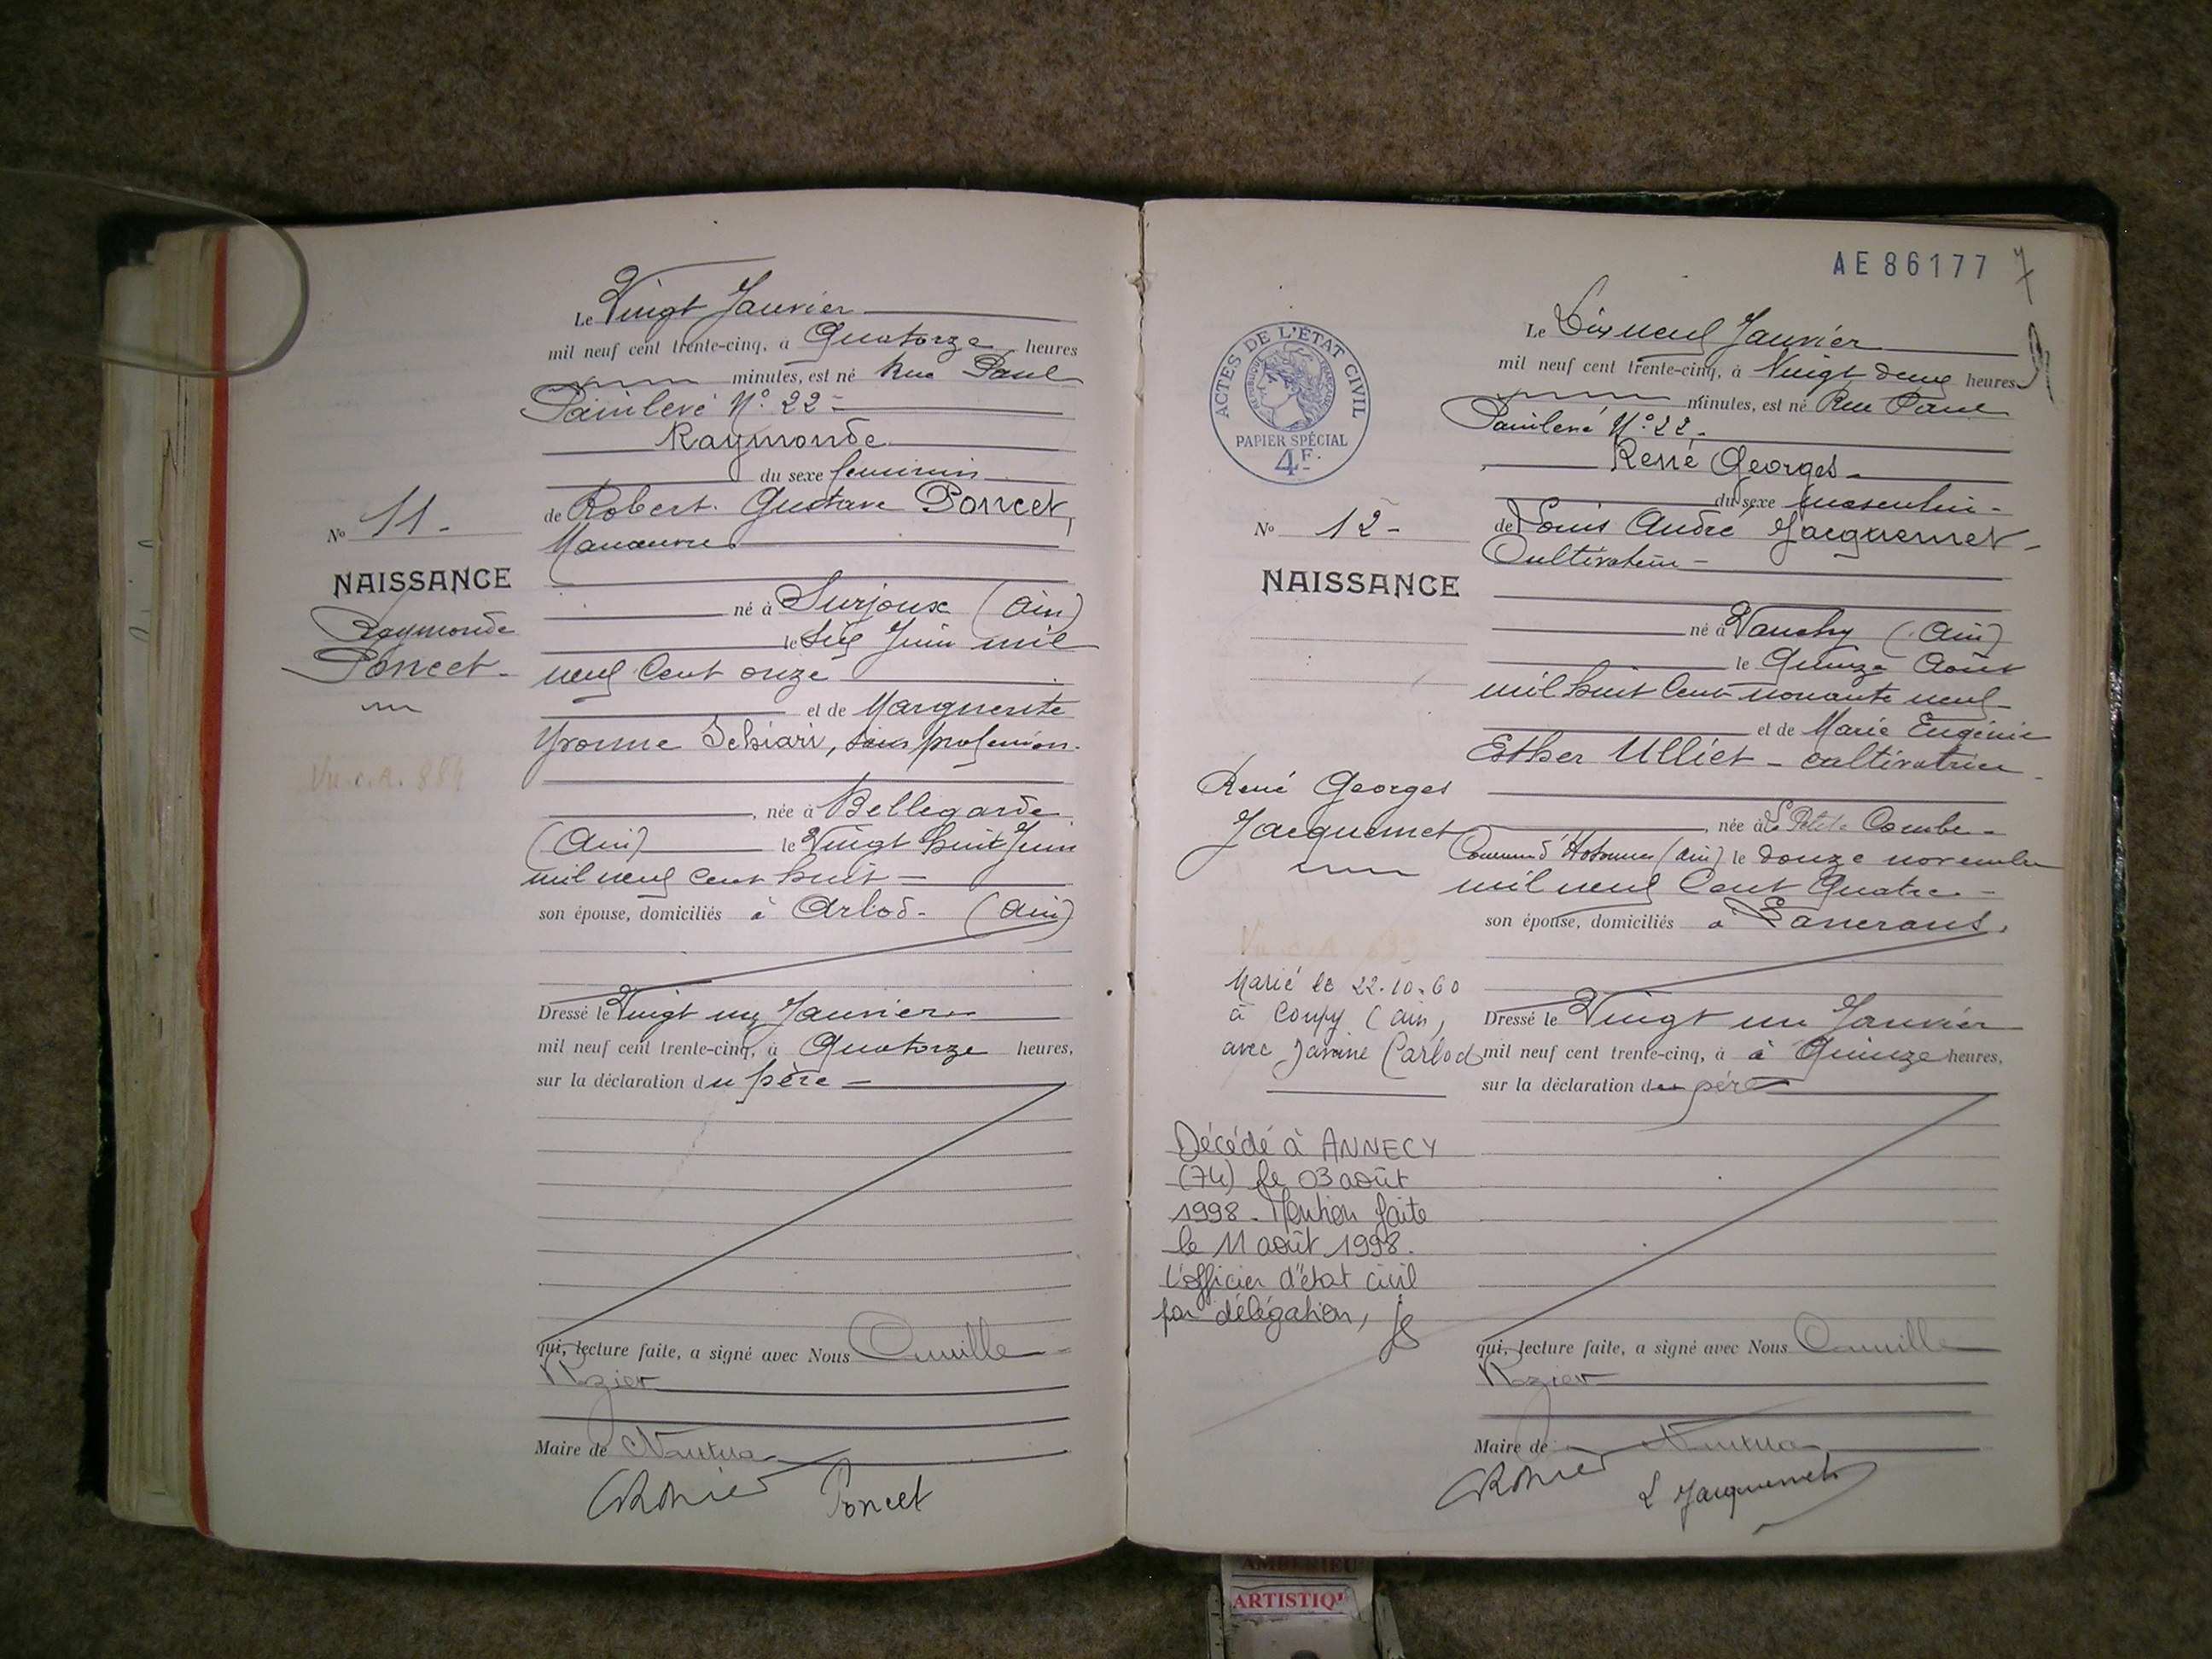 Le Vingt Janvier
mil neuf cent trente-cinq, à Quatorze heures
minutes, est né Rue Paul
Painlevé N° 22 -
Raymonde
du sexe feminin
de Robert Gustave Poncet,
Manœuvre
né à Surjoux (Ain)
le Six Juin mil
neuf Cent onze
et de Marguerite
Yvonne Schiari, sans profession.
, née à Bellegarde
(Ain) le Vingt huit Juin
mil neuf Cent huit -
son épouse, domiciliés à Arlod. (Ain)
Dressé le Vingt un Janvier
mil neuf cent trente-cinq, à Quatorze heures,
sur la déclaration du père -
qui, lecture faite, a signé avec Nous Camille
Rozier
Maire de Nantua
Poncet
No 11 -
NAISSANCE
Raymonde
Poncet -
Vu c.A. 884
AE 86177 7
ACTES DE L'ÉTAT CIVIL
RÉPUBLIQUE FRANÇAISE
PAPIER SPÉCIAL
4F.
Le Dix neuf Janvier
mil neuf cent trente-cinq, à Vingt deux heures
minutes, est né Rue Paul
Painlevé N° 22 -
René Georges -
du sexe masculin -
de Louis André Jacquemet -
Cultivateur -
né à Vanchy (Ain)
le Quinze Août
mil huit Cent nonante neuf -
et de Marie Eugénie
Esther Ulliet - cultivatrice -
, née à La Petite Combe -
Commune d'Hotonnes (Ain) le douze novembre
mil neuf Cent Quatre -
son épouse, domiciliés à Lancrans,
Dressé le Vingt un Janvier
mil neuf cent trente-cinq, à à Quinze heures,
sur la déclaration du père
qui, lecture faite, a signé avec Nous Camille
Rozier
Maire de Nantua
L Jacquemet
No 12 -
NAISSANCE
René Georges
Jacquemet
Vu c.A.
Marié le 22.10.60
à Coupy (Ain,
avec Janine Carlod
Décédé à ANNECY
(74) le 03 août
1998. Mention faite
le 11 août 1998.
L'officier d'état civil
par délégation,
AMBERIEU
ARTISTIQ